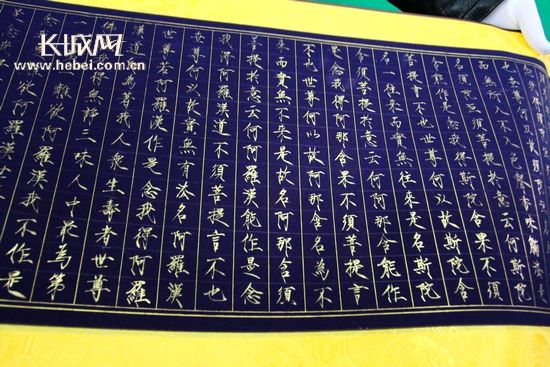 长城网
www.hebei.com.cn
入不入色聲香味觸法
須菩提於意云何斯陀
含能作是念我得斯陀含果不須
菩提言不也世尊何以故斯陀含
名一往來而實無往來是名斯陀
含須菩提於意云何阿那含能作
是念我得阿那含果不須菩提言
不也世尊何以故阿那含名為不
來而實無不來是故名阿那含須
菩提於意云何阿羅漢能作是念
我得阿羅漢道不須菩提言不也
世尊何以故實無有法名阿羅漢
世尊若阿羅漢作是念我得阿羅
漢道為著我人眾生壽者世尊
佛得無諍三昧人中最為第
一離欲阿羅漢我不作是
念欲阿羅漢